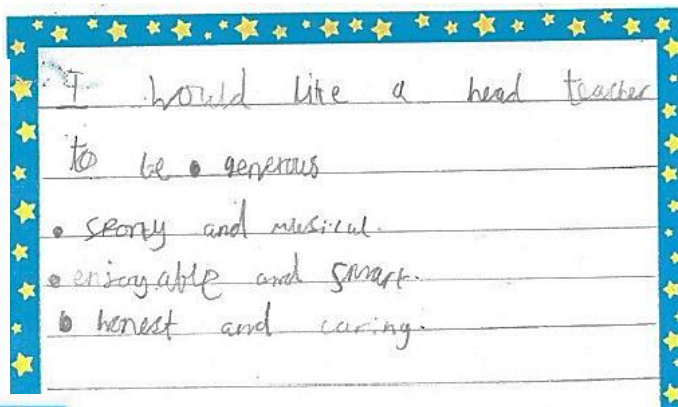 I would like a head teacher
to be • generous
• sporty and musical.
• enjoyable and smart.
• honest and caring.